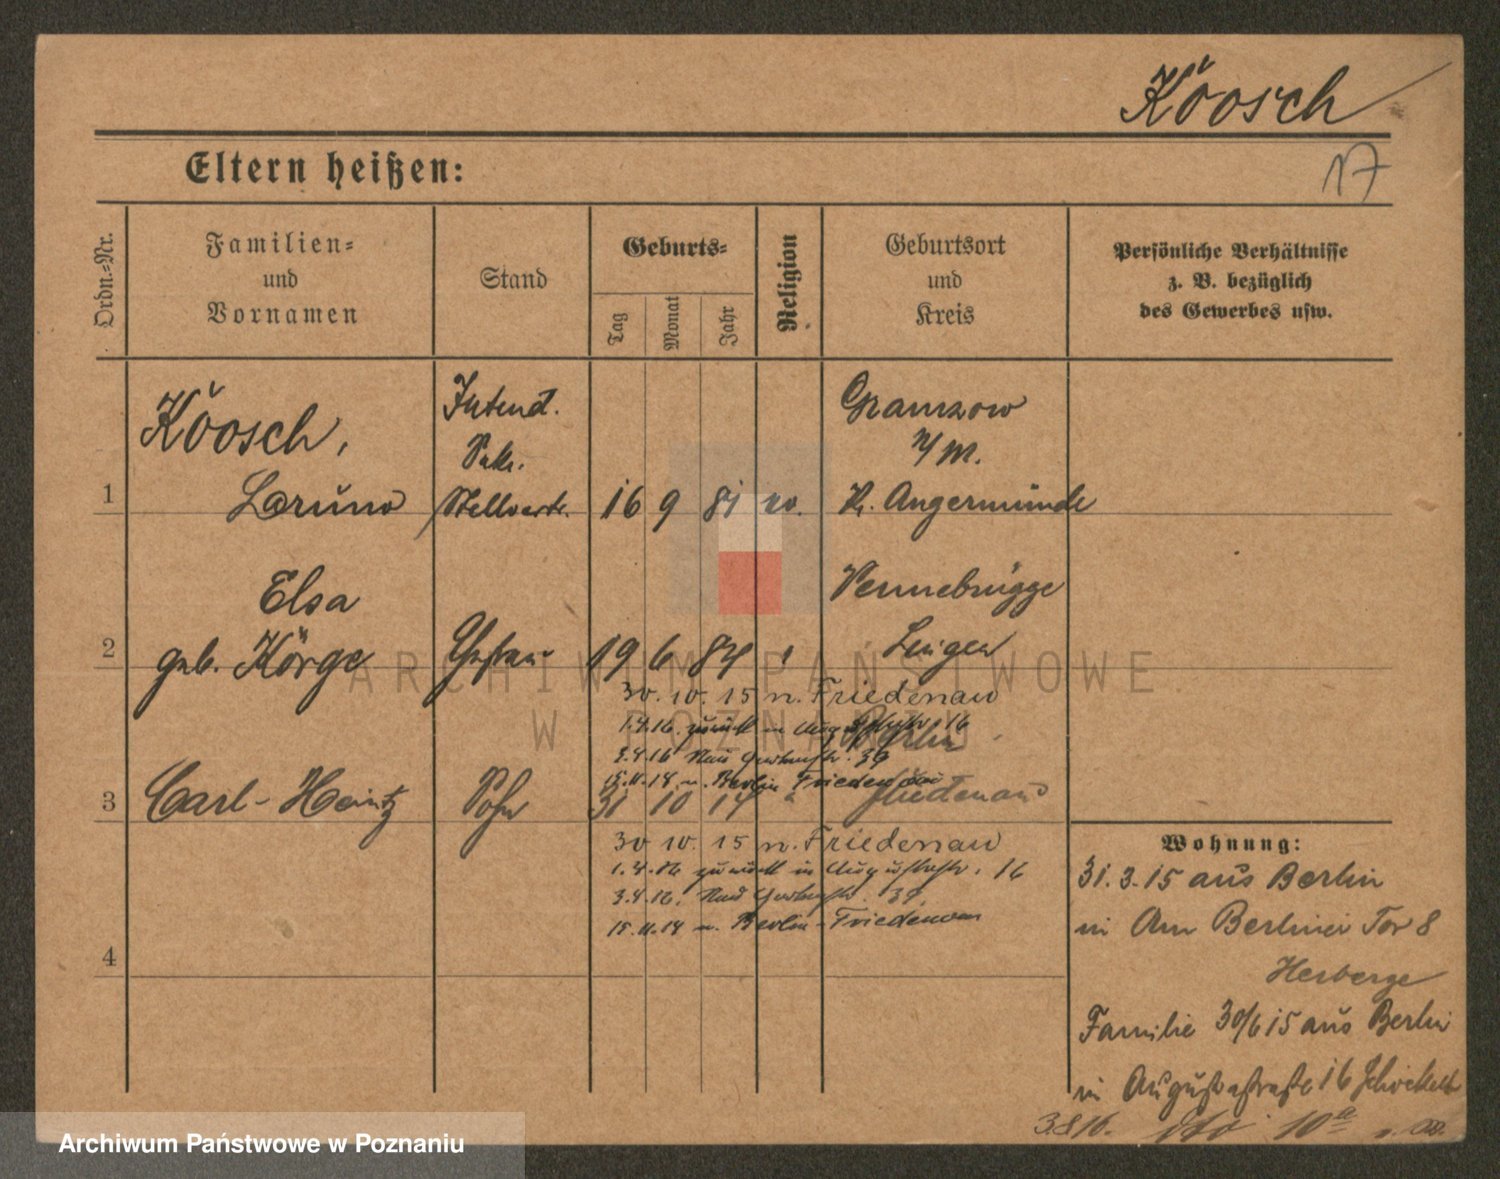 Köosch
17
Eltern heißen:
Ordn.=Nr.
Familien=
und
Vornamen
Stand
Geburts=
Tag
Monat
Jahr
Religion
Geburtsort
und
Kreis
Persönliche Verhältnisse
z. B. bezüglich
des Gewerbes usw.
1
Köosch,
Bruno
Intend.
Sekr.
Stellvertr.
16 9 81 ev.
Gramzow
U/M.
Kr. Angermünde
2
Elsa
geb. Körge
Ehefrau
19 6 84 "
Vennebrügge
Lingen
30. 10. 15 n. Friedenau
1.4.16. zurück in 16
3.4.16 39
15.11.18 n. Berlin Friedenau
3
Carl-Heintz
Sohn
31 10 14 "
Berlin
Friedenau
30 10. 15 n. Friedenau
1.4.16 zurück in Augustastr. 16
3.4.16. 39.
15.11.18 n. Berlin-Friedenau
4
Wohnung:
31.3.15 aus Berlin
in Am Berliner Tor 8
Herberge
Familie 30/6 15 aus Berlin
in Augustastraße 16
3.8.16. dto 10a
ARCHIWUM PAŃSTWOWE
W POZNANIU
Archiwum Państwowe w Poznaniu